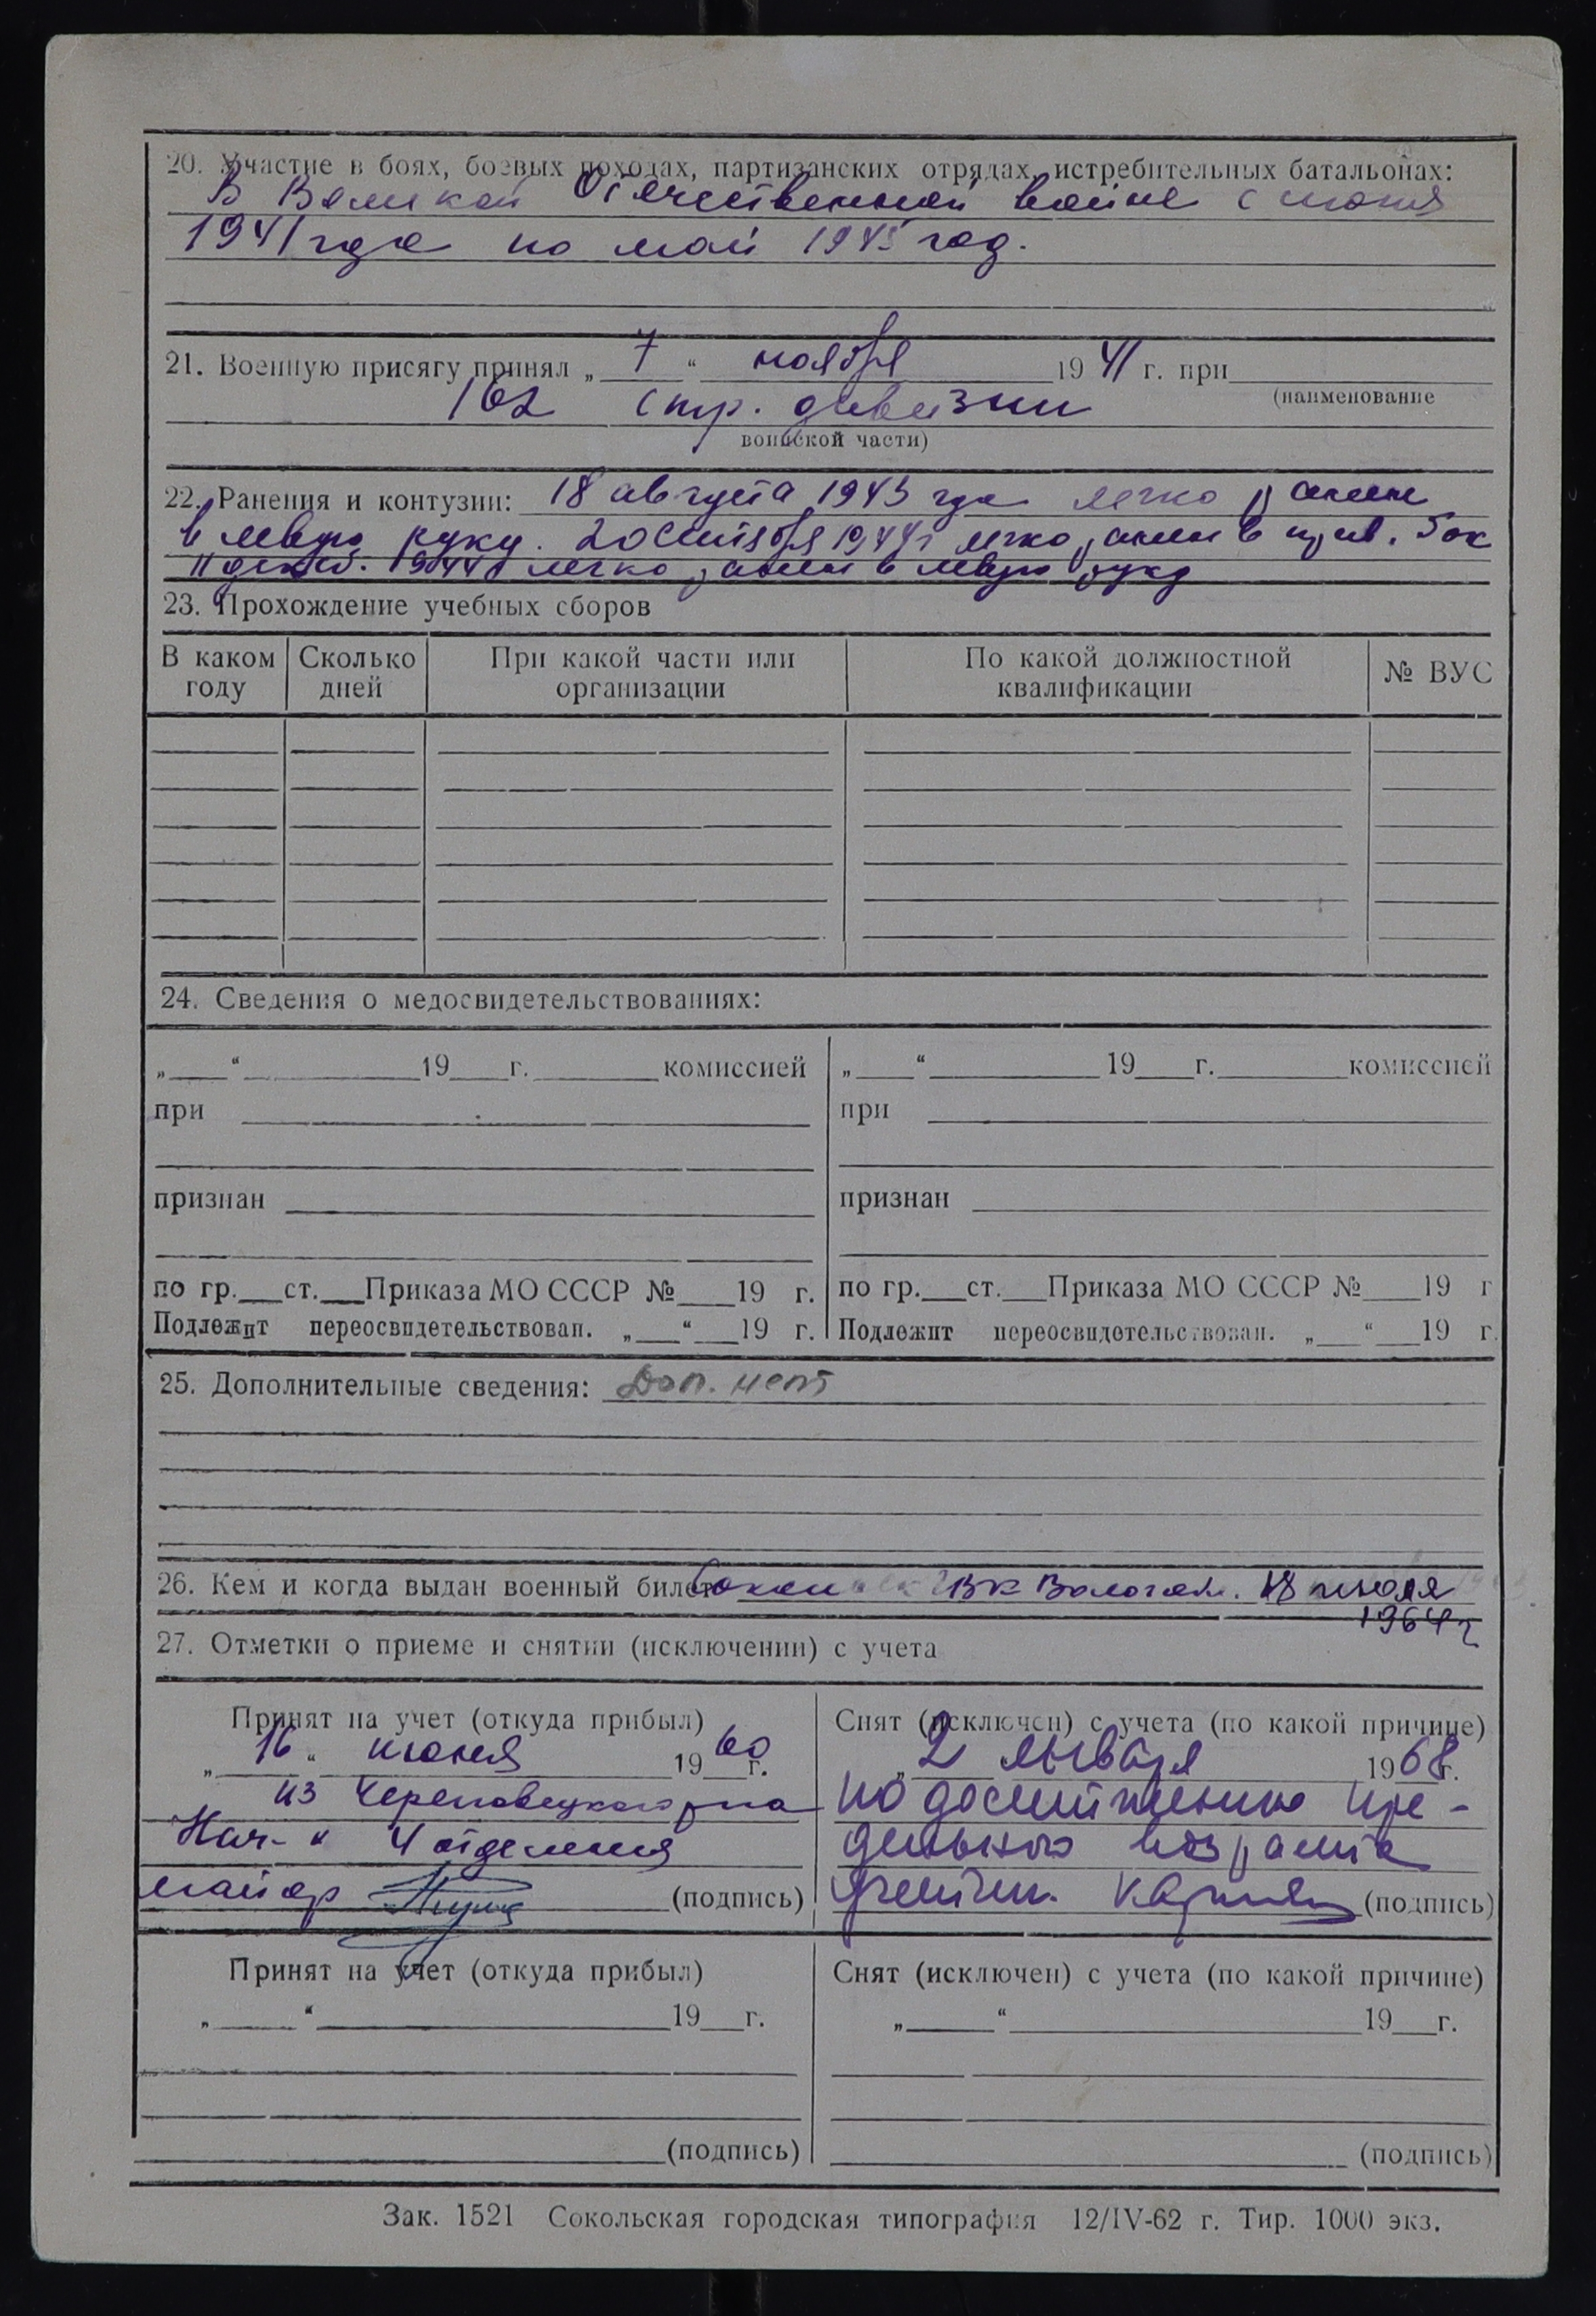 20. Участие в боях, боевых походах, партизанских отрядах, истребительных батальонах:
В Великой Отечественной войне с июня
1941 года по май 1945 год.
21. Военную присягу принял „ 7 “ ноября 19 41 г. при
162 стр. дивизии (наименование
воинской части)
22. Ранения и контузии: 18 августа 1943 года легко ранен
в левую руку. 20 сентября 1944 г легко ранен в прав. бок
11 декаб. 1944 г легко ранен в левую руку
23. Прохождение учебных сборов
В каком году Сколько дней При какой части или организации По какой должностной квалификации № ВУС
24. Сведения о медосвидетельствованиях:
„ “ 19 г. комиссией „ “ 19 г. комиссией
при при
признан признан
по гр. ст. Приказа МО СССР № 19 г. по гр. ст. Приказа МО СССР № 19 г
Подлежит переосвидетельствован. „ “ 19 г. Подлежит переосвидетельствован. „ “ 19 г.
25. Дополнительные сведения: Доп. нет
26. Кем и когда выдан военный билет ГВК Вологод. 18 июля
1964 г
27. Отметки о приеме и снятии (исключении) с учета
Принят на учет (откуда прибыл) Снят (исключен) с учета (по какой причине)
„ 16 “ июня 19 60 г. „ 2 января 19 68 г.
из Череповецкого р-на по достижению пре-
Нач-к 4 отделения дельного возраста
майор (подпись) (подпись)
Принят на учет (откуда прибыл) Снят (исключен) с учета (по какой причине)
„ “ 19 г. „ “ 19 г.
(подпись) (подпись)
Зак. 1521 Сокольская городская типография 12/IV-62 г. Тир. 1000 экз.